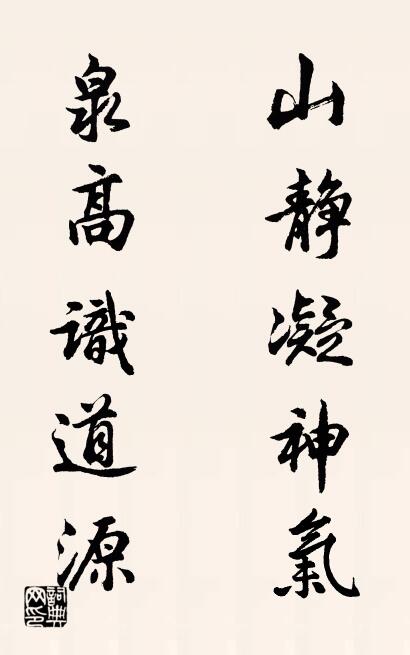 山静凝神氣
泉高識道源
詞典网印